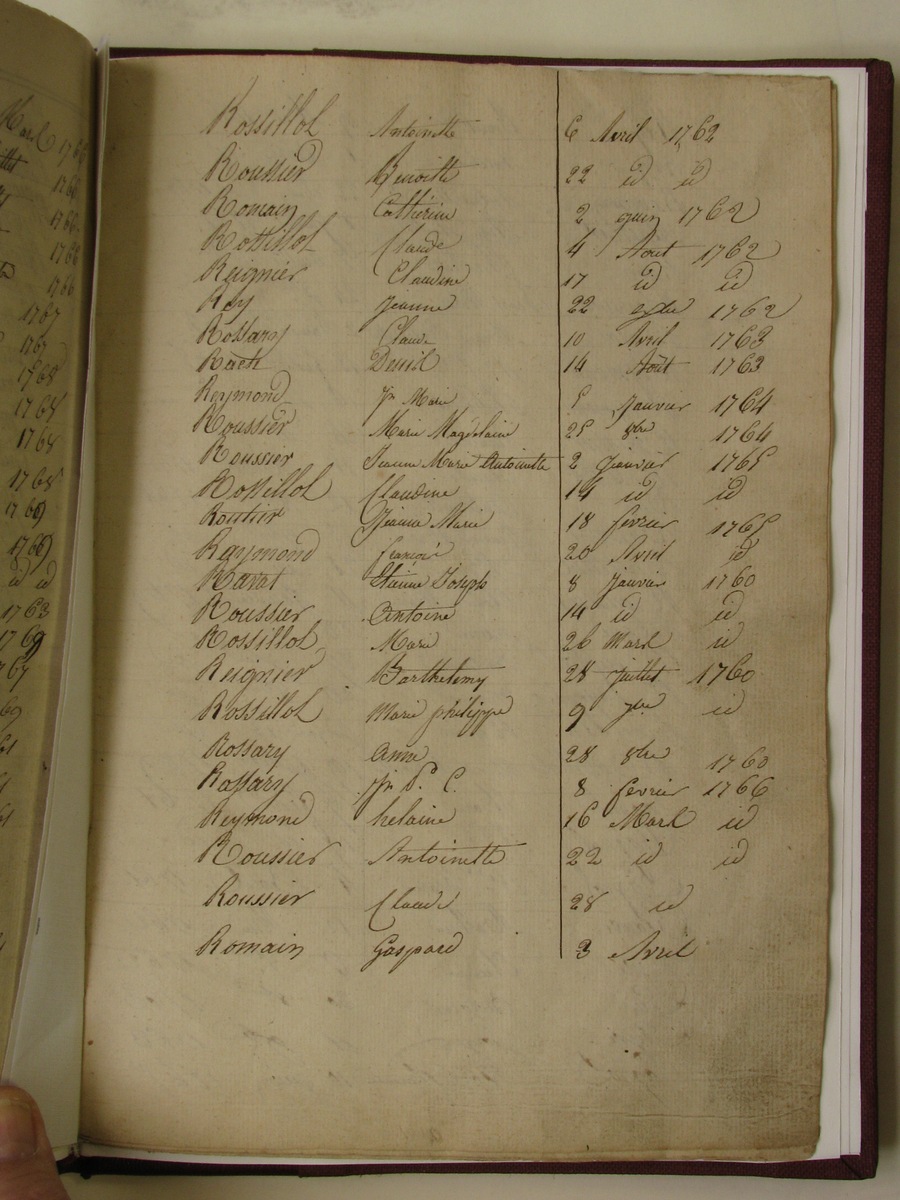 Rossillol Antoinette 6 Avril 1762
Roussier Benoitte 22 id id
Romain Catherine 2 juin 1762
Rossillol Claude 4 Aout 1762
Reignier Claudine 17 id id
Rey Jeanne 22 1762
Rossary Claude 10 Avril 1763
Denis 14 Août 1763
Reymond Jn Marie 5 Janvier 1764
Roussier Marie Magdelaine 25 8bre 1764
Roussier Jeanne Marie Antoinette 2 Janvier 1765
Rossillol Claudine 14 id id
Routier Jeanne Marie 18 fevrier 1765
Raymond françois 20 Avril id
Ravat Etienne Joseph 8 Janvier 1760
Roussier Antoine 14 id id
Rossillol Marie 26 Mars id
Reignier Barthelemy 28 Juillet 1760
Rossillol Marie philippe 9 7bre id
Rossary Anne 28 8bre 1760
Rossary Jn P. C. 8 fevrier 1766
Reymond helaine 16 Mars id
Roussier Antoinette 22 id id
Roussier Claude 28 id
Romain Gaspard 3 Avril